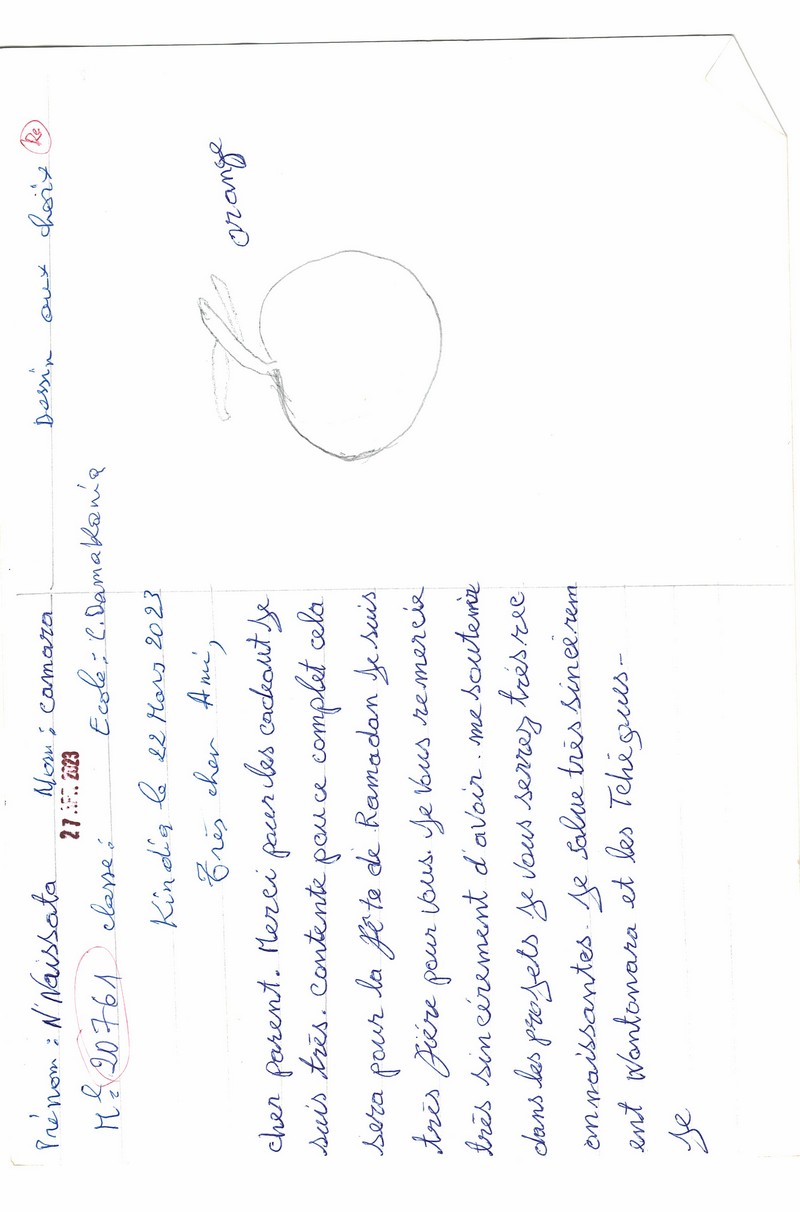 Prénom: N'Naissata Nom: camara
27 2023
Mle 20761 classe: Ecole: C. Damakania
Kindia le 22 Mars 2023
Très cher Ami,
cher parent. Merci pour les cadeaut Je
suis très. contente pou ce complet cela
sera pour la fête de Ramadan Je suis
très fière pour vous. Je vous remercie
très sincérement d'avoir. me soutenir
dans les projets Je vous serrez très rec
onnaissantes. Je salue très sincérem
ent Wontanara et les Tchéques-
Je
Dessin aux choix
Re
orange